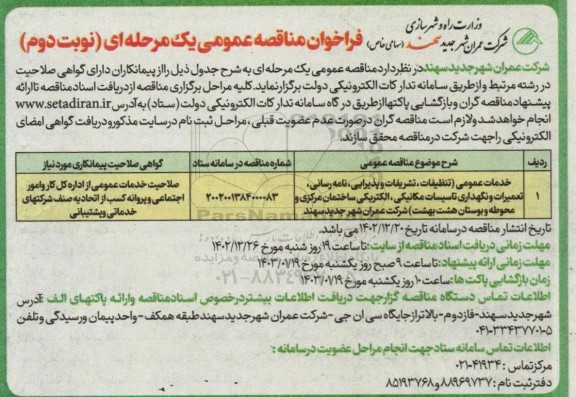 وزارت راه و شهرسازی
شرکت عمران شهر جدید سهند (سهامی خاص)
فراخوان مناقصه عمومی یک مرحله ای (نوبت دوم)
شرکت عمران شهر جدید سهند در نظر دارد مناقصه عمومی یک مرحله ای به شرح جدول ذیل را از پیمانکاران دارای گواهی صلاحیت
در رشته مرتبط و از طریق سامانه تدارکات الکترونیکی دولت برگزار نماید. کلیه مراحل برگزاری مناقصه از دریافت اسناد مناقصه تا ارائه
پیشنهاد مناقصه گران و بازگشایی پاکتها از طریق درگاه سامانه تدارکات الکترونیکی دولت (ستاد) به آدرس www.setadiran.ir
انجام خواهد شد و لازم است مناقصه گران در صورت عدم عضویت قبلی، مراحل ثبت نام در سایت مذکور و دریافت گواهی امضای
الکترونیکی را جهت شرکت در مناقصه محقق سازند.
ردیف شرح موضوع مناقصه عمومی شماره مناقصه در سامانه ستاد گواهی صلاحیت پیمانکاری مورد نیاز
۱ خدمات عمومی (تنظیفات، تشریفات و پذیرایی، نامه رسانی،
تعمیرات و نگهداری تاسیسات مکانیکی، الکتریکی ساختمان مرکزی و
محوطه و بوستان هشت بهشت) شرکت عمران شهر جدید سهند
۲۰۰۲۰۰۱۳۸۴۰۰۰۰۸۳
صلاحیت خدمات عمومی از اداره کل کار و امور
اجتماعی و پروانه کسب از اتحادیه صنف شرکتهای
خدماتی و پشتیبانی
تاریخ انتشار مناقصه در سامانه تاریخ ۱۴۰۲/۱۲/۲۰ می باشد.
مهلت زمانی دریافت اسناد مناقصه از سایت: تا ساعت ۱۹ روز شنبه مورخ ۱۴۰۲/۱۲/۲۶
مهلت زمانی ارائه پیشنهاد: تا ساعت ۹ صبح روز یکشنبه مورخ ۱۴۰۳/۰۱/۱۹
زمان بازگشایی پاکت ها: ساعت ۱۰ روز یکشنبه مورخ ۱۴۰۳/۰۱/۱۹
اطلاعات تماس دستگاه مناقصه گزار جهت دریافت اطلاعات بیشتر در خصوص اسناد مناقصه و ارائه پاکتهای الف: آدرس
شهر جدید سهند - فاز دوم - بالاتر از جایگاه سی ان جی - شرکت عمران شهر جدید سهند طبقه همکف - واحد پیمان و رسیدگی و تلفن
۰۴۱-۳۳۴۳۷۷۰۱-۵
اطلاعات تماس سامانه ستاد جهت انجام مراحل عضویت در سامانه:
مرکز تماس: ۴۱۹۳۴-۰۲۱
دفتر ثبت نام: ۸۸۹۶۹۷۳۷ و ۸۵۱۹۳۷۶۸